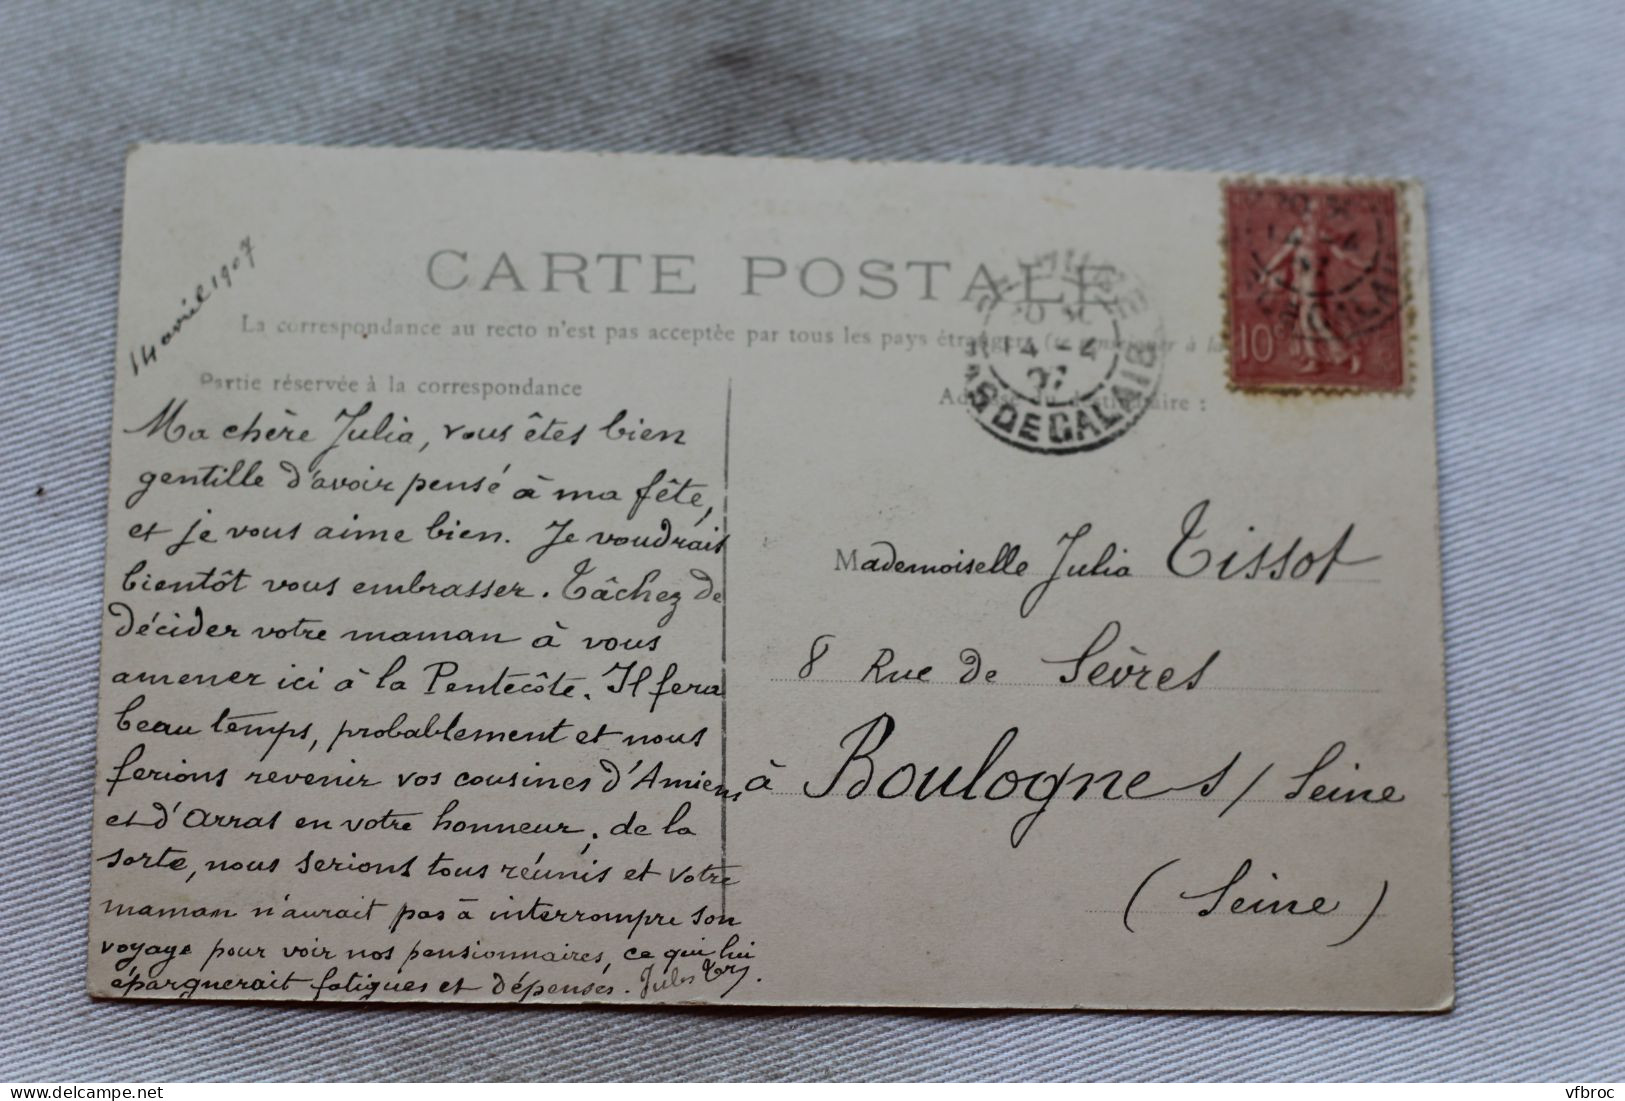 14 avril 1907
CARTE POSTALE
La correspondance au recto n'est pas acceptée par tous les pays étrangers (se renseigner à la
Partie réservée à la correspondance
Adresse du destinataire :
Ma chère Julia, vous êtes bien
gentille d'avoir pensé à ma fête,
et je vous aime bien. Je voudrais
bientôt vous embrasser. Tâchez de
décider votre maman à vous
amener ici à la Pentecôte. Il fera
beau temps, probablement et nous
ferions revenir vos cousines d'Amiens
et d'Arras en votre honneur; de la
sorte, nous serions tous réunis et votre
maman n'aurait pas à interrompre son
voyage pour voir nos pensionnaires, ce qui lui
épargnerait fatigues et dépenses. Jules
Mademoiselle Julia Tissot
8 Rue de Sèvres
à Boulogne s/ Seine
(Seine)
14 - 4
07
PAS DE CALAIS
10c
delcampe.net
vfbroc